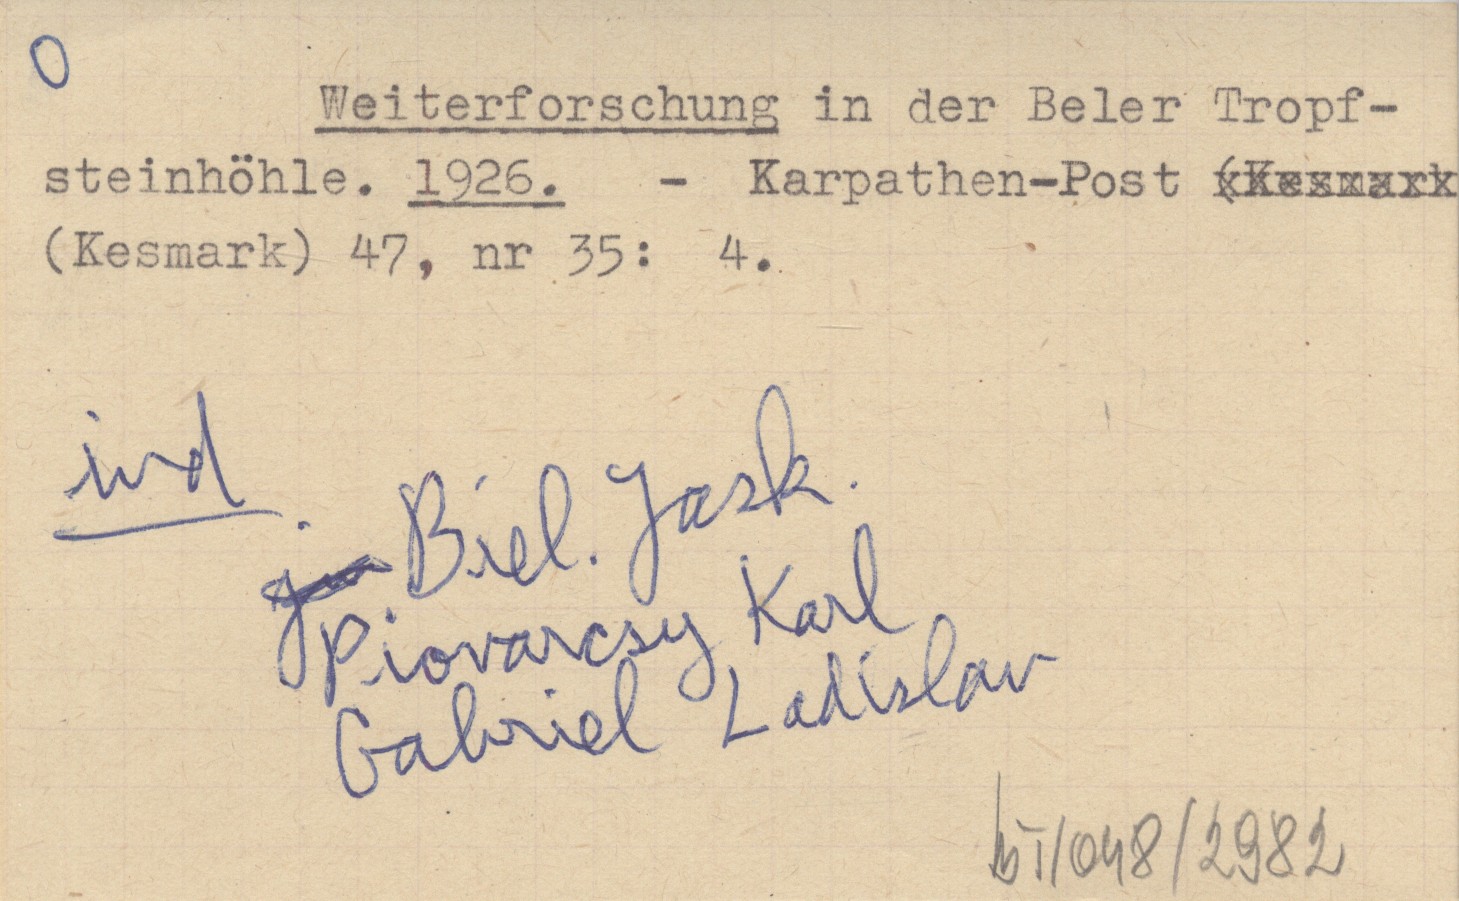 0
Weiterforschung in der Beler Tropf-
steinhöhle. 1926. - Karpathen-Post (Kesmark
(Kesmark) 47, nr 35: 4.
ind
Biel. Jask.
Piovarcsy Karl
Gabriel Ladislav
bT/048/2982